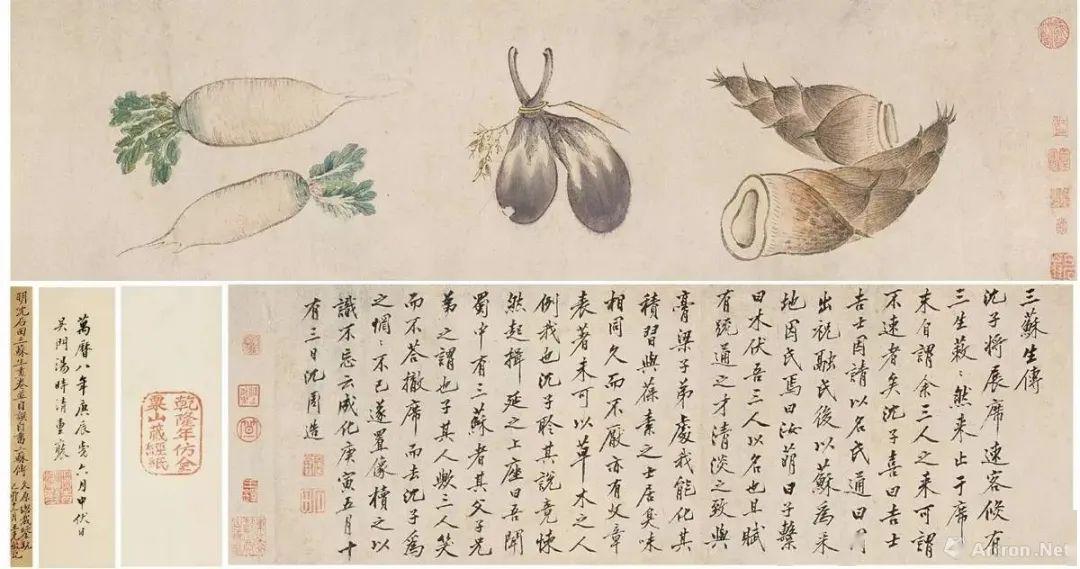 三蘇生傳
沈子将展席速客倏有
三生蔌〻然来止于席
末自謂余三人之来可謂
不速者矣沈子喜曰吉士
吉士因請以名氏通曰
出祝融氏後以蘇為采
地因氏焉曰汝萌曰子檕
曰木伏吾三人以名也且賦
有疏通之才清淡之致與
膏粱子弟處我能化其
積習與葆素之士居臭味
相同久而不厭亦有文章
表著未可以草木之人
例我也沈子聆其説竟悚
然起揖延之上座曰吾聞
蜀中有三蘇者其父子兄
弟之謂也子其人歟三人笑
而不答撤席而去沈子為
之惘〻不已遂置像櫝之以
識不忘云成化庚寅五月十
有三日沈周造
乾隆年仿金
粟山藏經紙
萬曆八年庚辰季六月中伏日
吴門湯時清重裝
明沈石田三蘇生畫卷并自譔自書三蘇傳
Artron.Net